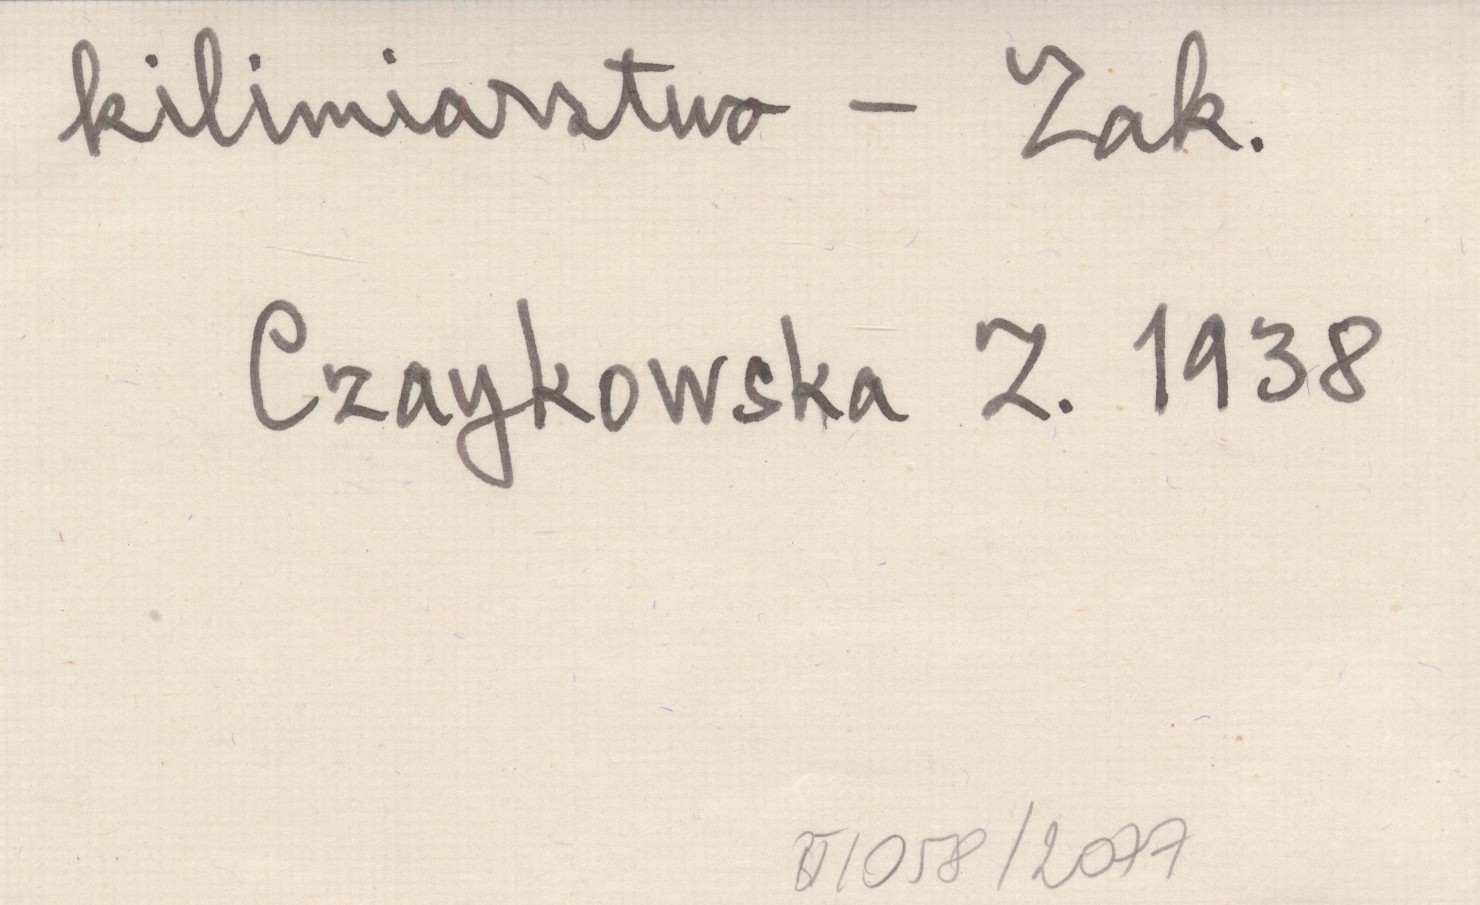 kilimiarstwo – Zak.
Czaykowska Z. 1938
/058/2077